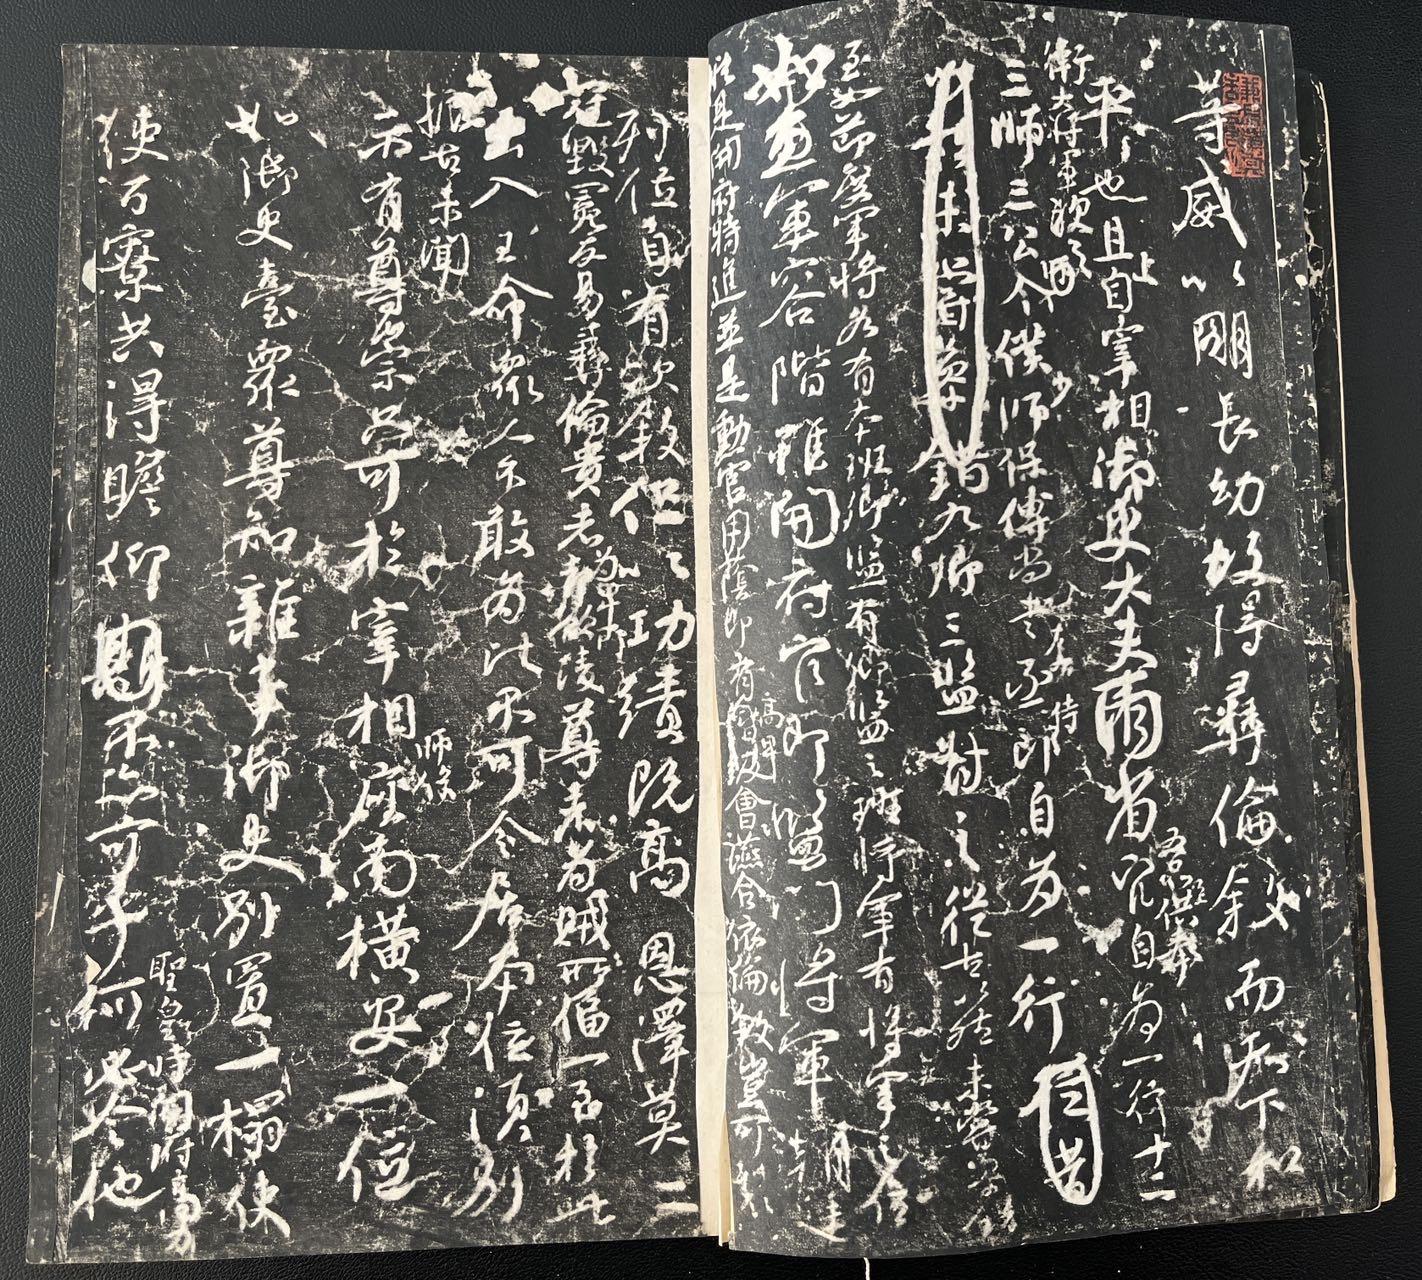 等威以明長幼故得彝倫敘而天下和
平也且上自宰相御史大夫兩省五品以上供奉官自為一行十二
衛大將軍次之
三師三公令僕少師保傅尚書左右丞侍郎自為一行
九卿三監對之從古以然未嘗參錯
至如節度軍將各有本班卿監有卿監之班將軍有將軍之位
如魚軍容階雖開府官即監門將軍朝廷
縱是開府特進並是勳官用蔭即有高卑會讌合依倫敘豈可裂
列位自有次敘但以功績既高恩澤莫二
冠毀冕反易彝倫貴者為卑所陵尊者為賊所逼一至於此
出入王命眾人不敢為此不可令居本位須別
振古未聞
示有尊崇只可於宰相師保座南橫安一位
如御史臺眾尊知雜事御史別置一榻使
使百寮共得瞻仰不亦可乎
聖皇時開府高力